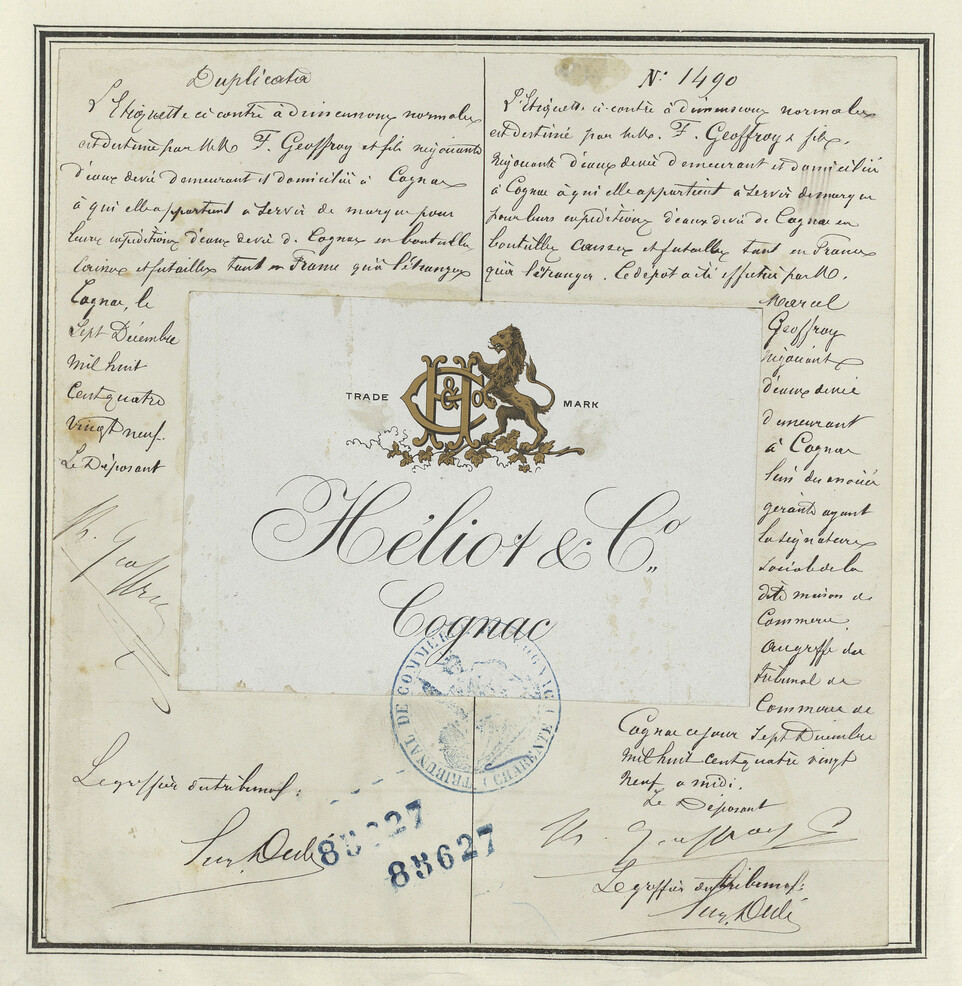 Duplicata
L'Etiquette ci contre à dimensions normales
est destiné par MM. F. Geoffroy et fils négociants
d'eaux de vie demeurant et domiciliés à Cognac
à qui elle appartient a servir de marque pour
leurs expéditions d'eaux de vie de Cognac en bouteilles
caisses et futailles tant en France qu'à l'étranger
Cognac, le
Sept Décembre
mil huit
Cent quatre
Vingt neuf.
Le Déposant
M. Geoffroy
Le greffier du tribunal:
N° 1490
L'Etiquette ci-contre à dimensions normales
est destiné par MM. F. Geoffroy & fils,
Négociants d'eaux de vie demeurant et domiciliés
à Cognac à qui elle appartient a servir de marque
pour leurs expéditions d'eaux de vie de Cognac en
bouteilles caisses et futailles tant en France
qu'à l'étranger. Le depot a été effectué par M.
Marcel
Geoffroy
négociant
d'eaux de vie
demeurant
à Cognac
l'un des associés
gérants ayant
la signature
sociale de la
dite maison de
Commerce.
Au greffe du
tribunal de
Commerce de
Cognac ce jour Sept Décembre
mil huit cent quatre vingt
Neuf a midi.
Le Déposant
M. Geoffroy
Le greffier du tribunal:
TRADE MARK
H & Co
Héliot & Co.
Cognac
TRIBUNAL DE COMMERCE COGNAC (CHARENTE)
85627
85627